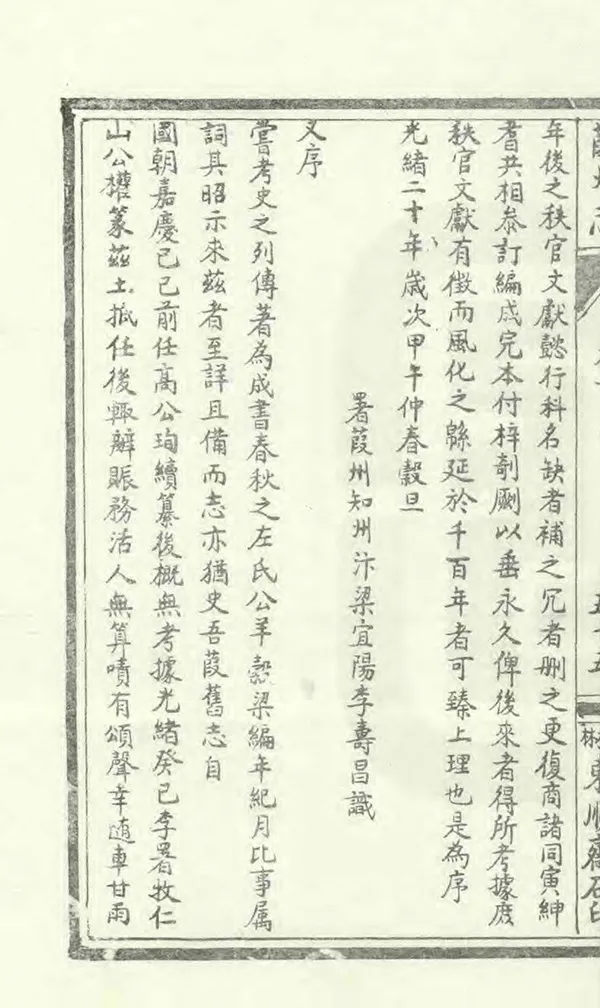 葭州志
五十五
東順齋石印
年後之秩官文獻懿行科名缺者補之冗者刪之更復商諸同寅紳
耆共相叅訂編成完本付梓剞劂以垂永久俾後來者得所考據庶
秩官文獻有徵而風化之緜延於千百年者可臻上理也是為序
光緒二十年歲次甲午仲春穀旦
署葭州知州汴梁宜陽李壽昌識
又序
嘗考史之列傳著為成書春秋之左氏公羊穀梁編年紀月比事属
詞其昭示来茲者至詳且備而志亦猶史吾葭舊志自
國朝嘉慶己巳前任高公珣續纂後概無考據光緒癸巳李署牧仁
山公權篆茲土抵任後輙辦賑務活人無算嘖有頌聲幸随車甘雨